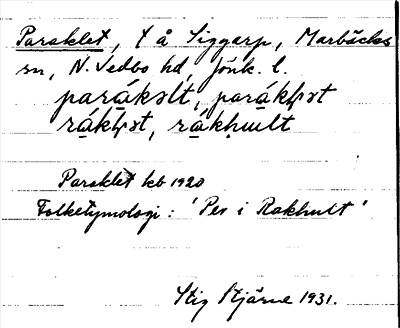 Paraklet, t å Siggarp, Marbäcks
sn, N. Vedbo hd, Jönk. l.
parákəlt, parákłət
rákłət, rákhult
Paraklet kb 1920
Folketymologi: 'Per i Rakhult'
Stig Stjärne 1931.